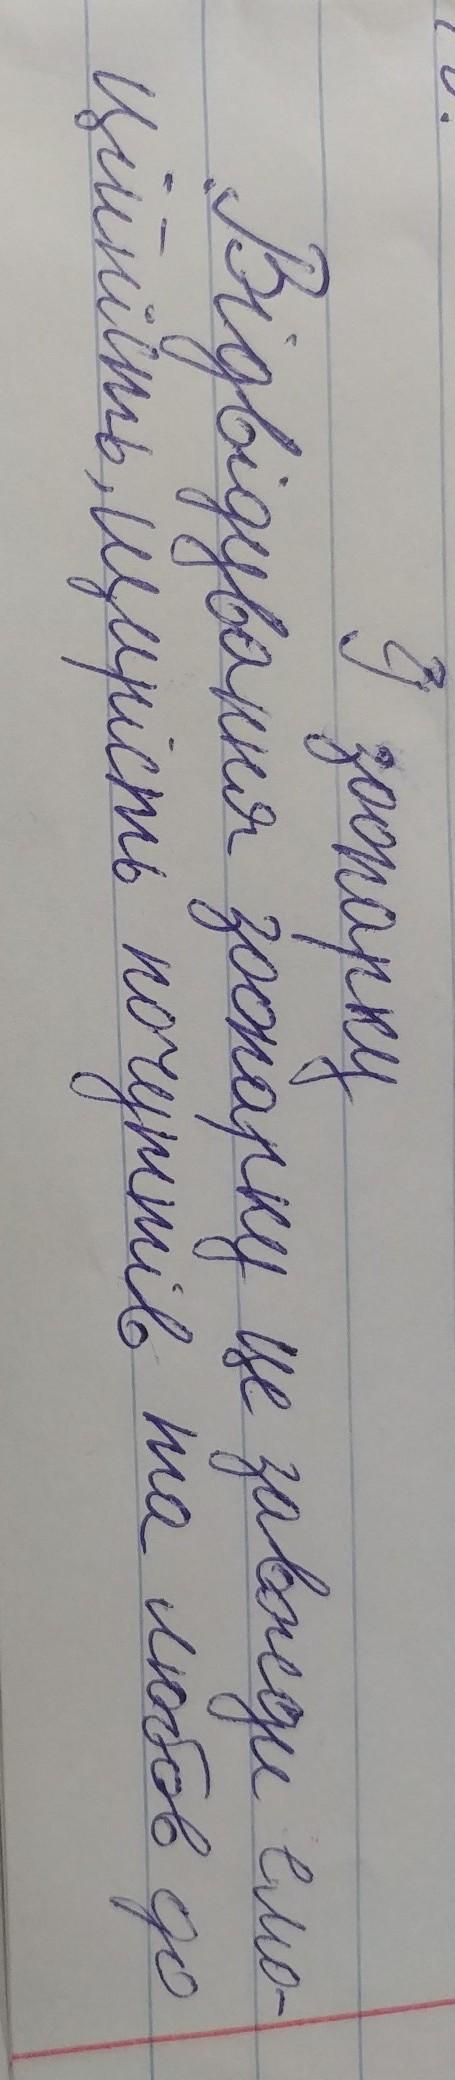 У зоопарку
Відвідування зоопарку це завжди емо-
ційність, щирість почуттів та любов до